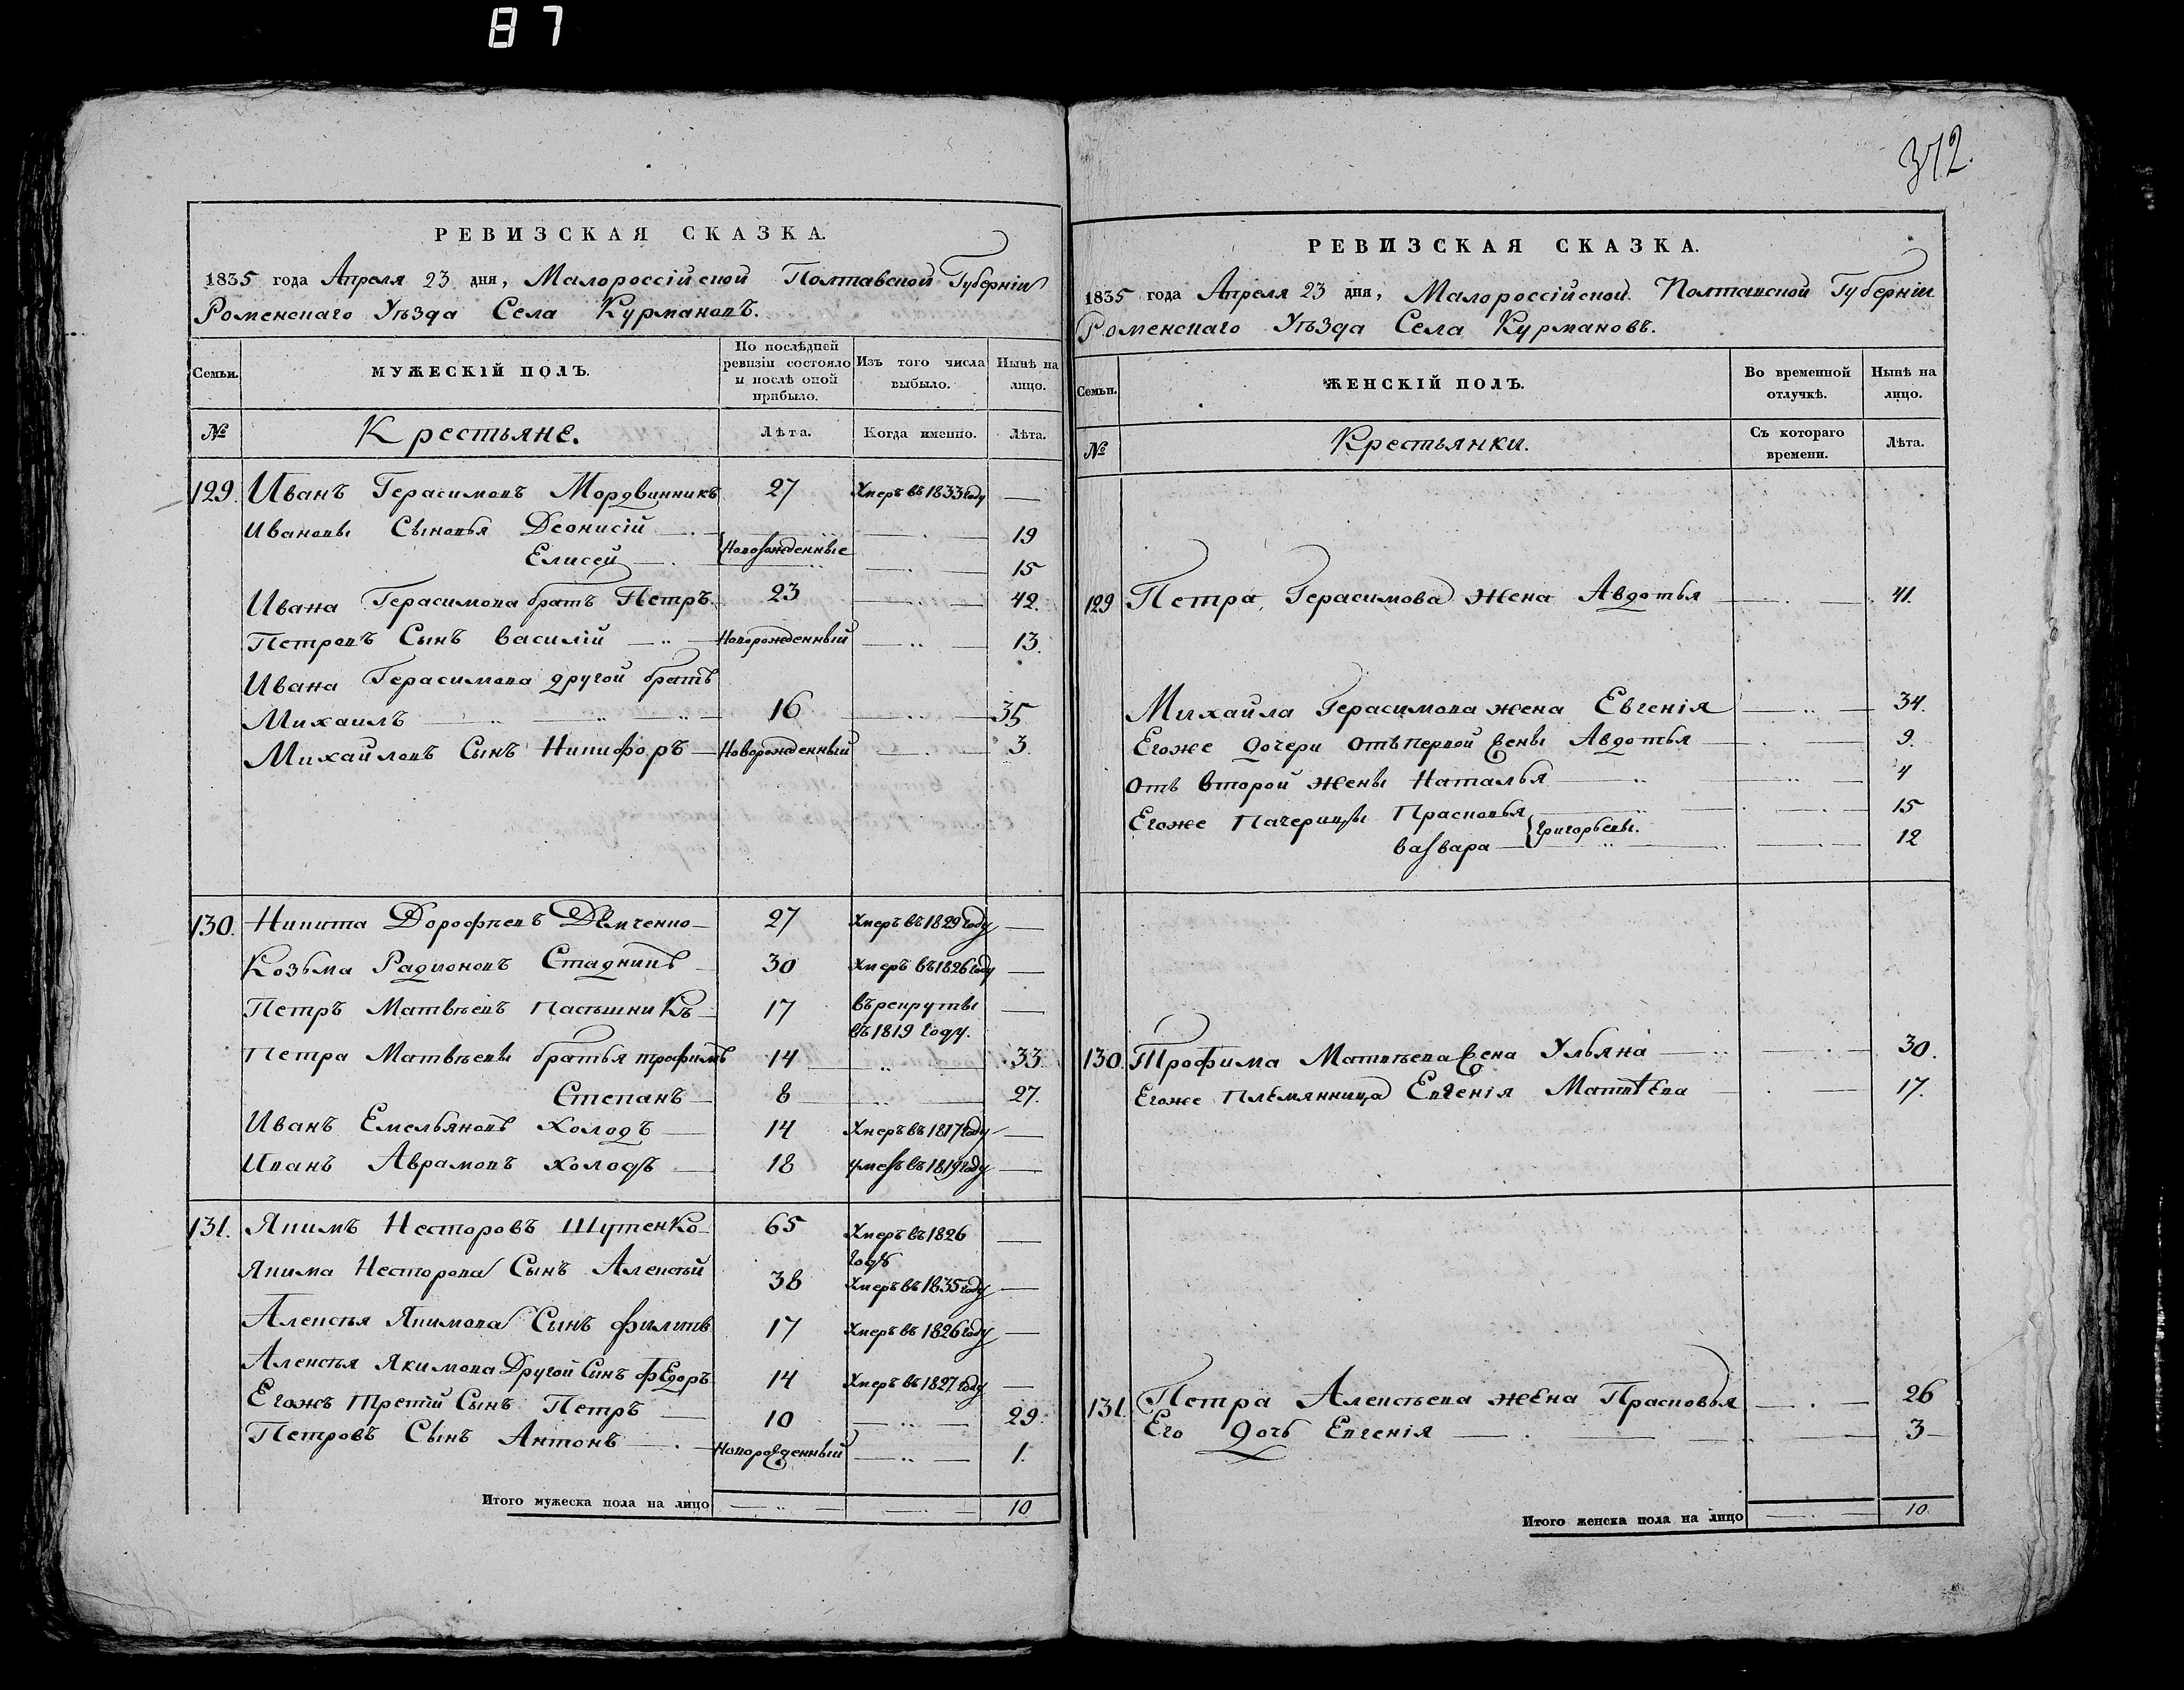 87
372.
РЕВИЗСКАЯ СКАЗКА.
1835 года Апреля 23 дня, Малороссійской Полтавской Губерніи
Роменскаго Уѣзда Села Курмановъ.
Семьи.
МУЖЕСКІЙ ПОЛЪ.
По послѣдней ревизіи состояло и послѣ оной прибыло.
Изъ того числа выбыло.
Нынѣ на лицо.
№
Крестьяне.
Лѣта.
Когда именно.
Лѣта.
129. Иванъ Герасимовъ Мордвинникъ 27 Умеръ въ 1833 году —
Ивановы Сыновья Деонисій Новорожденные 19
Елисей 15
Ивана Герасимова братъ Петръ. 23 42.
Петровъ Сынъ Василій Новорожденный 13.
Ивана Герасимова другой братъ
Михаилъ 16 35
Михайловъ Сынъ Никифоръ Новорожденный 3.
130. Никита Дорофѣевъ Демченко 27 Умеръ въ 1829 году —
Козьма Радионовъ Стадникъ 30 Умеръ въ 1826 году —
Петръ Матвѣевъ Пасѣшникъ 17 въ рекруты —
въ 1819 году.
Петра Матвѣевы братья Трофимъ 14 33
Степанъ 8 27.
Иванъ Емельяновъ Холодъ 14 Умеръ въ 1817 году —
Иванъ Аврамовъ Холодъ 18 Умеръ въ 1819 году —
131. Якимъ Несторовъ Шутенко 65 Умеръ въ 1826 —
году
Якима Несторова Сынъ Алексѣй 38 Умеръ въ 1835 году —
Алексѣя Якимова Сынъ Филипъ 17 Умеръ въ 1826 году —
Алексѣя Якимова Другой Сынъ Федоръ 14 Умеръ въ 1827 году —
Егожъ Третій Сынъ Петръ 10 29.
Петровъ Сынъ Антонъ Новорожденный 1.
Итого мужеска пола на лицо 10
РЕВИЗСКАЯ СКАЗКА.
1835 года Апреля 23 дня, Малороссійской Полтавской Губерніи
Роменскаго Уѣзда Села Курмановъ.
Семьи.
ЖЕНСКІЙ ПОЛЪ.
Во временной отлучкѣ.
Нынѣ на лицо.
№
Крестьянки.
Съ котораго времени.
Лѣта.
129 Петра Герасимова Жена Авдотья 41.
Михайла Герасимова жена Евгенія 34.
Егоже дочери отъ первой жены Авдотья 9.
отъ второй жены Наталья 4
Егоже Пачерицы Прасковья 15
Варвара } Григорьевы. 12
130. Трофима Матвѣева жена Ульяна 30.
Егоже племянница Евгенія Матвѣева 17.
131. Петра Алексѣева жена Прасковья 26
Его Дочь Евгенія 3
Итого женска пола на лицо 10.